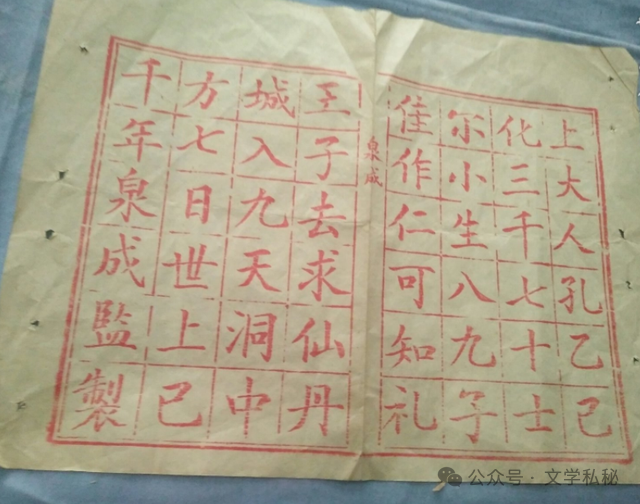 上大人孔乙己
化三千七十士
尔小生八九子
佳作仁可知礼
泉成
王子去求仙丹
城入九天洞中
方七日世上已
千年泉成監製
公众号·文学私秘